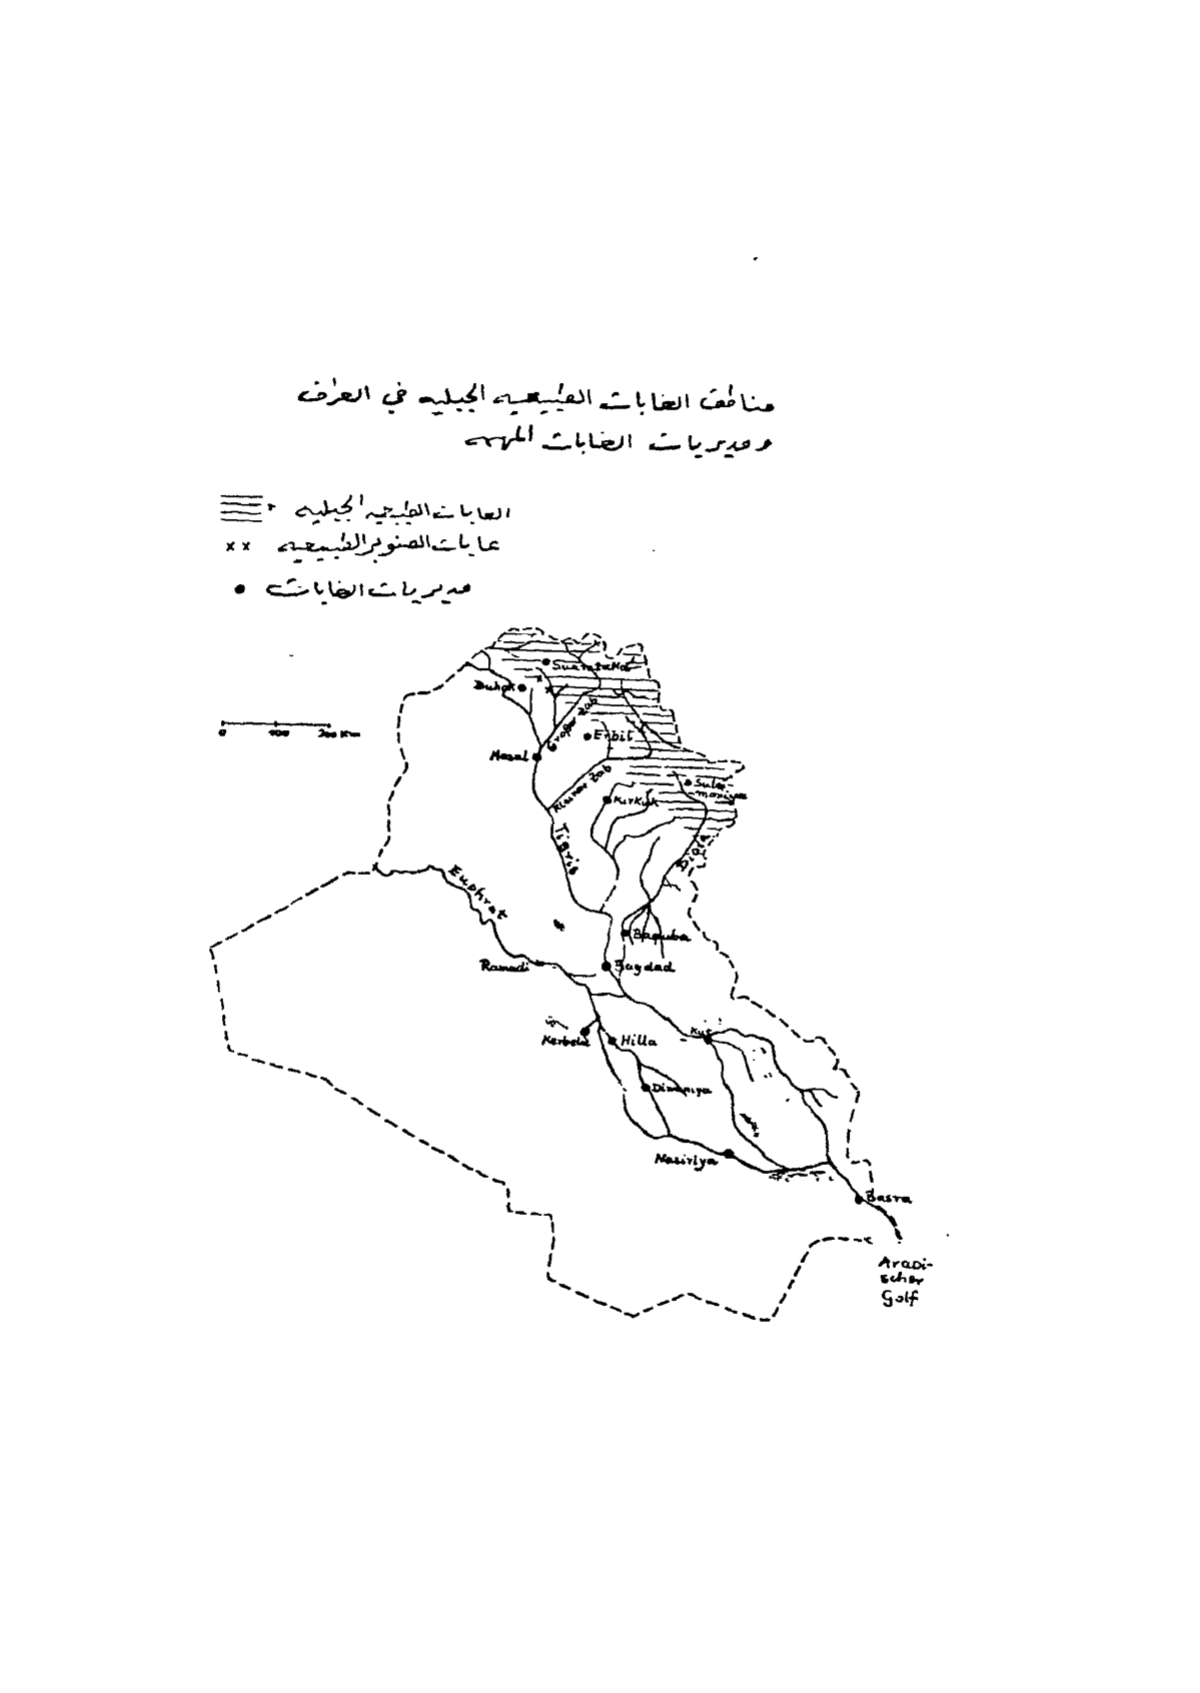 مناطق الغابات الطبيعيه الجبليه في العراق
ومديريات الغابات المهمه
الغابات الطبيعيه الجبليه
غابات الصنوبر الطبيعيه
مديريات الغابات
0 100 200 Km
Duhok
Großer Zab
Erbil
Mosul
Kleiner Zab
Sulei-
maniya
Kirkuk
Tigris
Diala
Euphrat
Baquba
Ramadi
Bagdad
Kerbela
Hilla
Kut
Diwaniya
Nasiriya
Basra
Arabi-
scher
Golf